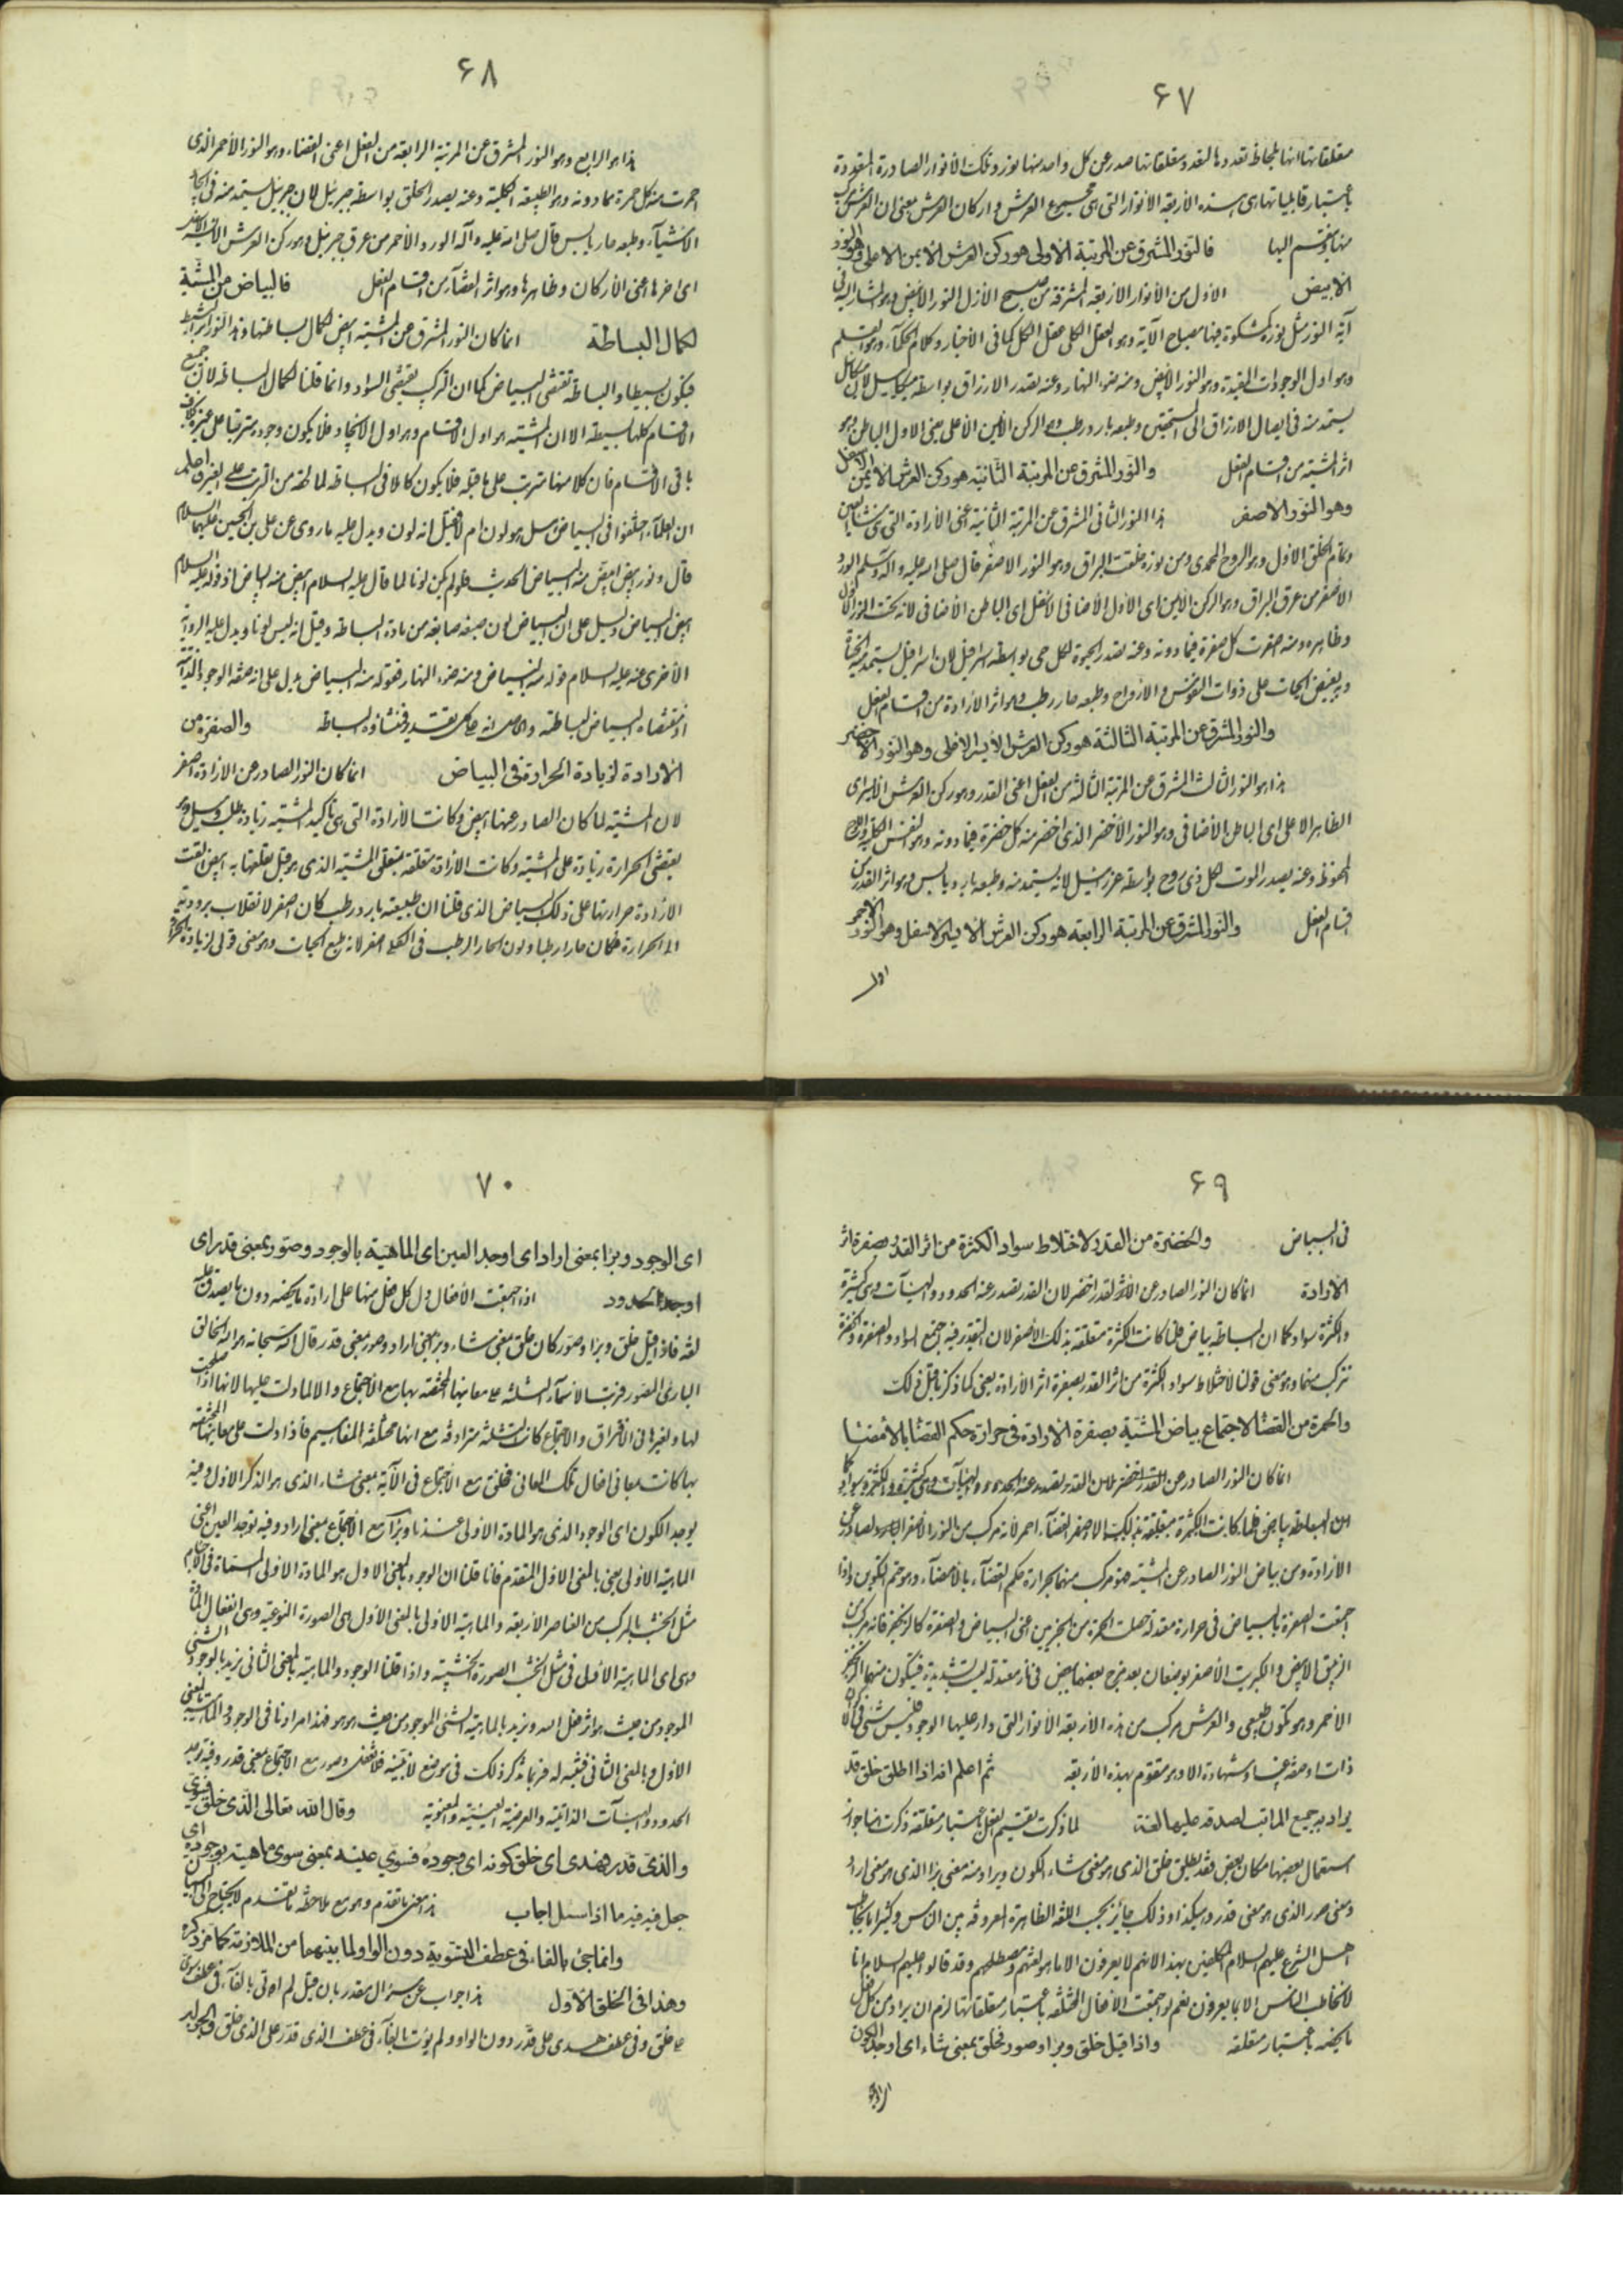 ۶۷
متعلقاتها انها بلحاظ تعددها لتعدد متعلقاتها صدر عن كل واحد منها نور وتلك الأنوار الصادرة المتعددة
باعتبار قابلياتها هى هذه الأربعة الأنوار التى هى مجموع العرش واركان العرش بمعنى ان العرش مركب
منها وينقسم اليها فالنور المشرق عن المرتبة الاولى هو ركن العرش الايمن الاعلى وهو النور
الابيض الأول من الأنوار الأربعة المشرقة من صبح الأزل النور الأبيض وهو المشار اليه فى
آية النور مثل نوره كمشكوة فيها مصباح الآية وهو العقل الكلى عقل الكل كما فى الأخبار وكلام الحكماء وهو القلم
وهو اول الوجودات المقيدة وهو النور الأبيض ومنه ضوء النهار وعنه تصدر الارزاق بواسطة ميكائيل لأن ميكائيل
يستمد منه فى ايصال الارزاق الى المستحقين وطبعه بارد رطب وهو الركن الأيمن الأعلى يعنى الاول الباطن وهو
اثر المشية من اقسام الفعل والنور المشرق عن المرتبة الثانية هو ركن العرش الأيمن الاسفل
وهو النور الاصفر هذا النور الثانى المشرق عن المرتبة الثانية اعنى الأرادة التى
وتمام الخلق الاول وهو الروح المحمدى ومن نوره خلقت البراق وهو النور الاصفر قال صلى الله عليه واله وسلم الورد
الأصفر من عرق البراق وهو الركن الأيمن اى الأول الأضافى الاسفل اى الباطن الأضافى لانه تحت النور الاول
وظاهره ومنه اصفرت كل صفرة فيما دونه وعنه تصدر الحيوة لكل حى بواسطة اسرافيل لان اسرافيل يستمد منه الحياة
ويفيض الحيات على ذوات النفوس والأرواح وطبعه حار رطب وهو اثر الأرادة من اقسام الفعل
والنور المشرق عن المرتبة الثالثة هو ركن العرش الأيسر الاعلى وهو النور الاخضر
هذا هو النور الثالث المشرق عن المرتبة الثالثة من الفعل اعنى القدر وهو ركن العرش الأيسر اى
الظاهر الاعلى اى الباطن الأضافى وهو النور الأخضر الذى اخضر منه كل خضرة فيما دونه وهو النفس الكلية واللوح
المحفوظ وعنه يصدر الموت لكل ذى روح بواسطة عزرائيل لانه يستمد منه وطبعه بارد يابس وهو اثر القدر من
اقسام الفعل والنور المشرق عن المرتبة الرابعة هو ركن العرش الأيسر الاسفل وهو النور الاحمر
۶۸
هذا هو الرابع وهو النور المشرق عن المرتبة الرابعة من الفعل اعنى القضاء وهو النور الأحمر الذى
احمرت منه كل حمرة مما دونه وهو الطبيعة الكلية وعنه يصدر الخلق بواسطة جبرئيل لان جبرئيل يستمد منه فى ايجاد
الاشياء وطبعه حار يابس قال صلى الله عليه واله الورد الأحمر من عرق جبرئيل وهو ركن العرش الايسر
اى اخرها اعنى الأركان وظاهرها وهو اثر القضاء من اقسام الفعل فالبياض من المشية
لكمال البساطة انما كان النور المشرق عن المشية ابيض لكمال بساطتها
فيكون بسيطا والبساطة تقتضى البياض كما ان التركيب يقتضى السواد وانما قلنا لكمال البساطة لان جميع
الاقسام كلها بسيطة الا ان المشية هو اول الاقسام وهو اول الايجاد فلا يكون وجوده مترتبا على غيره بخلاف
باقى الأقسام فان كلا منها مترتب على ما قبله فلا يكون كاملا فى البساطة لما لحقه من الترتب على الغير واعلم
ان العلماء اختلفوا فى البياض هل هو لون ام لا فقيل انه لون ويدل عليه ما روى عن على بن الحسين عليهما السلام
قال ونور ابيض ابيض منه البياض الحديث فلو لم يكن لونا لما قال عليه السلام ابيض منه البياض اذ قوله عليه السلام
ابيض البياض دليل على ان البياض لون صبغه صابغه من مادة البساطة وقيل انه ليس لونا ويدل عليه الرواية
الأخرى عنه عليه السلام قوله منه البياض ومنه ضوء النهار فقوله منه البياض يدل على انه صفة الوجود
اذ مقتضاه البياض لبساطته والصفرة من
الارادة لزيادة الحرارة فى البياض انما كان النور الصادر عن الارادة اصفر
لان المشية لما كان الصادر عنها ابيض وكانت الأرادة التى هى تأكيد المشية زيادة طلب وميل وهو
يقتضى الحرارة زيادة على المشية وكانت الأرادة متعلقة بمتعلق المشية الذى هو قبل تعلقها به ابيض لقت
الارادة حرارتها على ذلك البياض الذى قلنا ان طبيعته بارد رطب كان اصفر لانقلاب برودته
الى الحرارة فكان حارا رطبا ولون الحار الرطب فى اصفر لانه طبع الحيات وهو معنى قولى لزيادة الحرارة
۶۹
فى البياض والخضرة من القدر لاختلاط سواد الكثرة من اثر القدر بصفرة اثر
الارادة انما كان النور الصادر عن القدر اخضر لان القدر تصدر عنه الحدود والهيئات وهى كثيرة
والكثرة سواد كما ان البساطة بياض فلما كانت الكثرة متعلقة بذلك الاصفر لان التقدير فيه جمع السواد والصفرة والخضرة
تتركب منهما وهو معنى قولنا لاختلاط سواد الكثرة من اثر القدر بصفرة اثر الأرادة يعنى كما ذكر ما قبل ذلك
والحمرة من القضا لاجتماع بياض المشية بصفرة الارادة فى حرارة حكم القضا بالامضا
القضاء احمر لأنه مركب من النور الأصفر الصادر عن
الارادة ومن بياض النور الصادر عن المشية هو مركب منهما بحرارة حكم القضاء بالامضاء وهو ختم التكوين واذا
اجتمعت الصفرة بالبياض فى حرارة معتدلة حصلت الحمرة من الجزئين اعنى البياض والصفرة كالزنجفر فانه مركب من
الزيبق الابيض والكبريت الأصفر يوضعان بعد مزج بعضهما ببعض فى نار معتدلة ليست شديدة فيتكون منهما الزنجفر
الأحمر وهو تكون طبيعى والعرش مركب من هذه الأربعة الأنوار التى دار عليها الوجود فليس شئ فى الأكوان
ذات او صفة غيب او شهادة الا وهو متقوم بهذه الأربعة ثم اعلم انه اذا اطلق خلق قد
يراد به جميع المراتب لصدقه عليها لغة لما ذكرت تقسيم الفعل باعتبار متعلقه ذكرت هنا جواز
استعمال بعضها مكان بعض فقد يطلق خلق الذى هو معنى شاء الكون ويراد منه معنى برأ الذى هو معنى اراد
ومعنى صور الذى هو معنى قدر وهكذا وذلك جائز بحسب اللغة الظاهرة المعروفة بين الناس وكثيرا ما يخاطب
اهل الشرع عليهم السلام المكلفين بهذا لانهم لا يعرفون الا ما هو لغتهم ومصطلحهم وقد قالوا عليهم السلام انا
لا نخاطب الناس الا بما يعرفون نعم لو اجتمعت الأفعال المختلفة باعتبار متعلقاتها لزم ان يراد من كل فعل
ما يخصه باعتبار متعلقه واذا قيل خلق وبرا وصور فخلق بمعنى شاء اى اوجد الكون
۷۰
اى الوجود وبرا بمعنى اراد اى اوجد العين اى الماهية بالوجود وصور بمعنى قدر اى
اوجد الحدود اذا اجتمعت الأفعال دل كل فعل منها على ارادة ما يخصه دون ما يصدق عليه
لغة فاذا قيل خلق وبرا وصور كان خلق بمعنى شاء وبرا بمعنى اراد وصور بمعنى قدر قال الله سبحانه هو الله الخالق
البارئ المصور فرتب الأسماء الثلثة على معانيها المختصة بها مع الأجتماع والا لما دلت عليها لانها اذا صلحت
لها ولغيرها فى الأفتراق والاجتماع كانت الثلثة مترادفة مع انها مختلفة المفاهيم فاذا دلت على معانيها المختصة
بها كانت معانى افعال تلك المعانى فخلق مع الأجتماع فى الآية بمعنى شاء الذى هو الذكر الاول وفيه
يوجد الكون اى الوجود الذى هو المادة الاولى عندنا وبرأ مع الاجتماع بمعنى اراد وفيه توجد العين اعنى
الماهية الاولى يعنى بالمعنى الاول المتقدم فانا قلنا ان الوجود بالمعنى الاول هو المادة الاولى
مثل الخشب المركب من العناصر الاربعة والماهية الأولى بالمعنى الأول هى الصورة النوعية وهى انفعال المادة
وهى اى الماهية الأولى فى مثل الخشب الصورة الخشبية واذا قلنا الوجود والماهية بالمعنى الثانى نريد بالوجود الشئ
الموجود من حيث هو اثر فعل الله ونريد بالماهية الشئ الموجود من حيث هو هو فهذا مرادنا فى الوجود والماهية بالمعنى
الاول وبالمعنى الثانى فتنبه له فربما نذكر ذلك فى موضع لا نبينه فلا تغفل وصور مع الاجتماع بمعنى قدر وفيه توجد
الحدود والهيئات الذاتية والعرضية العينية والمعنوية وقال الله تعالى الذى خلق فسوى
والذى قدر فهدى اى خلق كونه اى وجوده فسوى عينه بمعنى سوى ماهيته بوجوده اى
جعل فيه ما اذا سئل اجاب هذا معنى ما تقدم وهو مع ملاحظة ما تقدم لا يحتاج الى البيان
وانما جئ بالفاء فى عطف التسوية دون الواو لما بينهما من الملازمة كما مر ذكره
وهذا فى الخلق الاول هذا جواب عن سؤال مقدر بان قيل لم اوتى بالفاء فى عطف سوى
على خلق وفى عطف هدى على قدر دون الواو ولم يؤت بالفاء فى عطف الذى قدر على الذى خلق